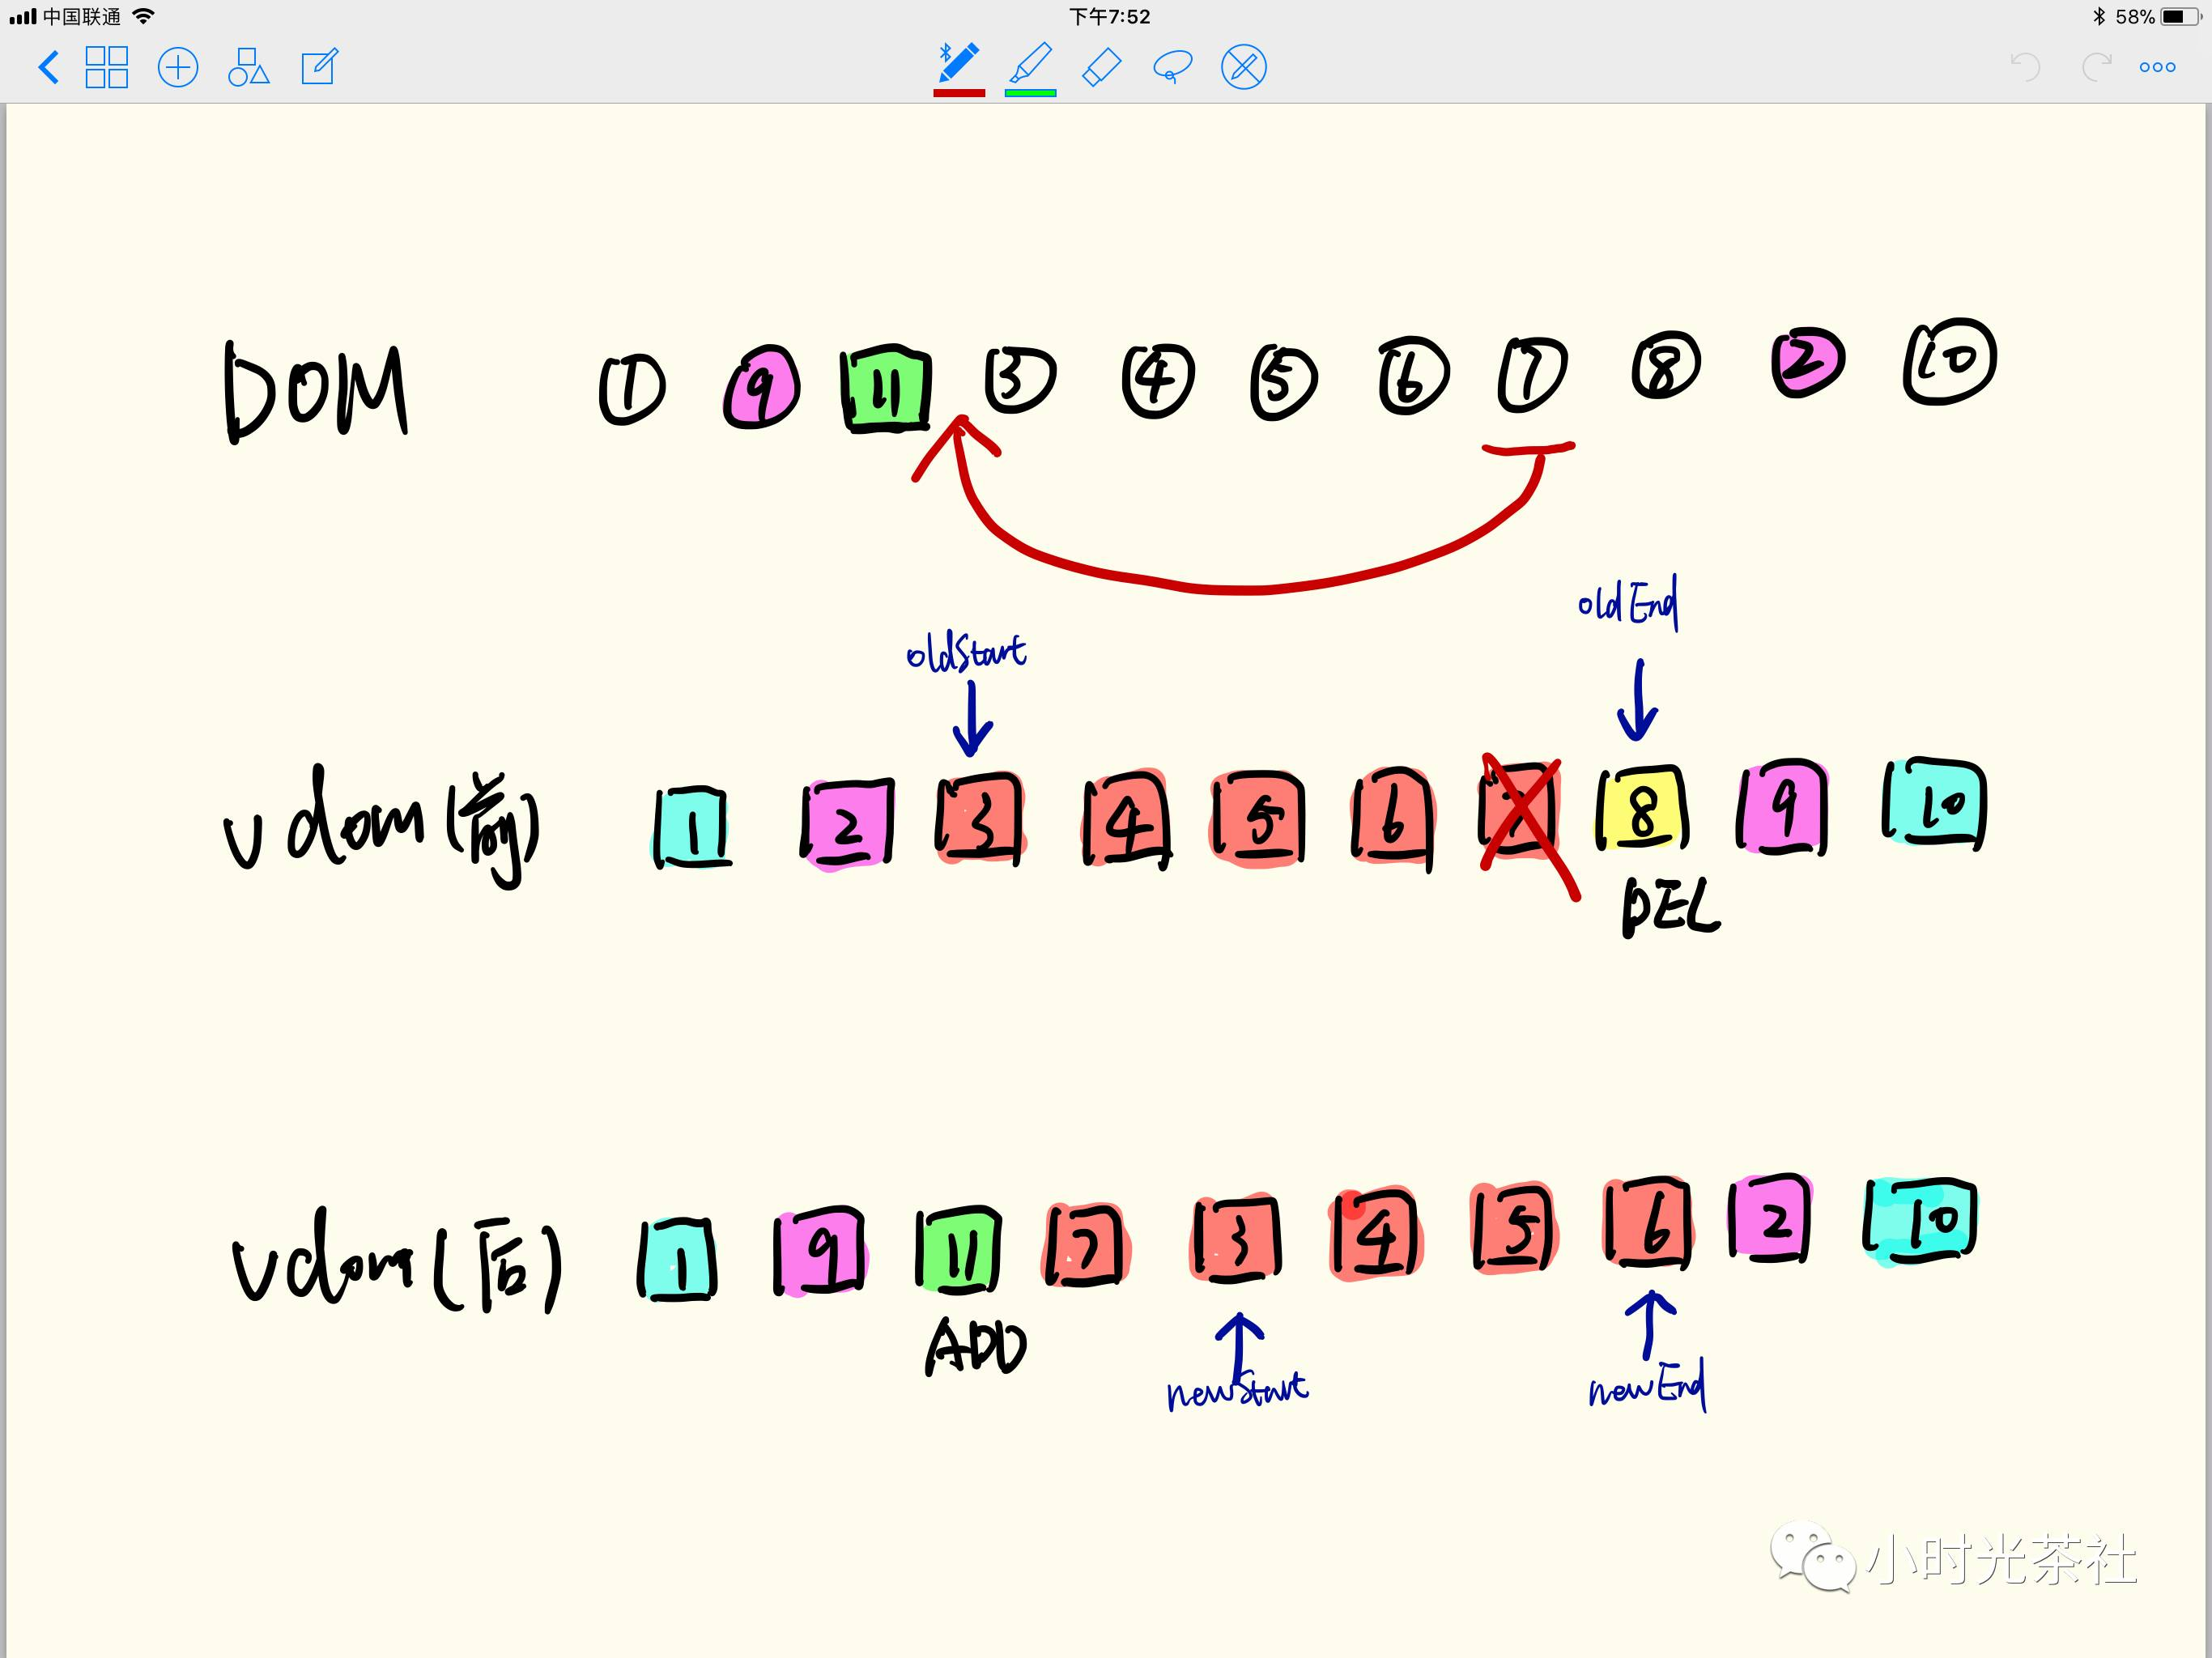 中国联通 下午7:52 58%
DOM 1 9 11 3 4 5 6 7 8 2 10
oldStart oldEnd
vdom(前) 1 2 3 4 5 6 8 9 10
DEL
vdom(后) 1 9 11 7 3 4 5 6 2 10
ADD
newStart newEnd
小时光茶社